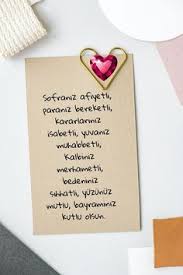 Sofranız afiyetli,
paranız bereketli,
kararlarınız
isabetli, yuvanız
muhabbetli,
Kalbiniz
merhametli,
bedeniniz
sıhhatli, yüzünüz
mutlu, bayramınız
kutlu olsun.